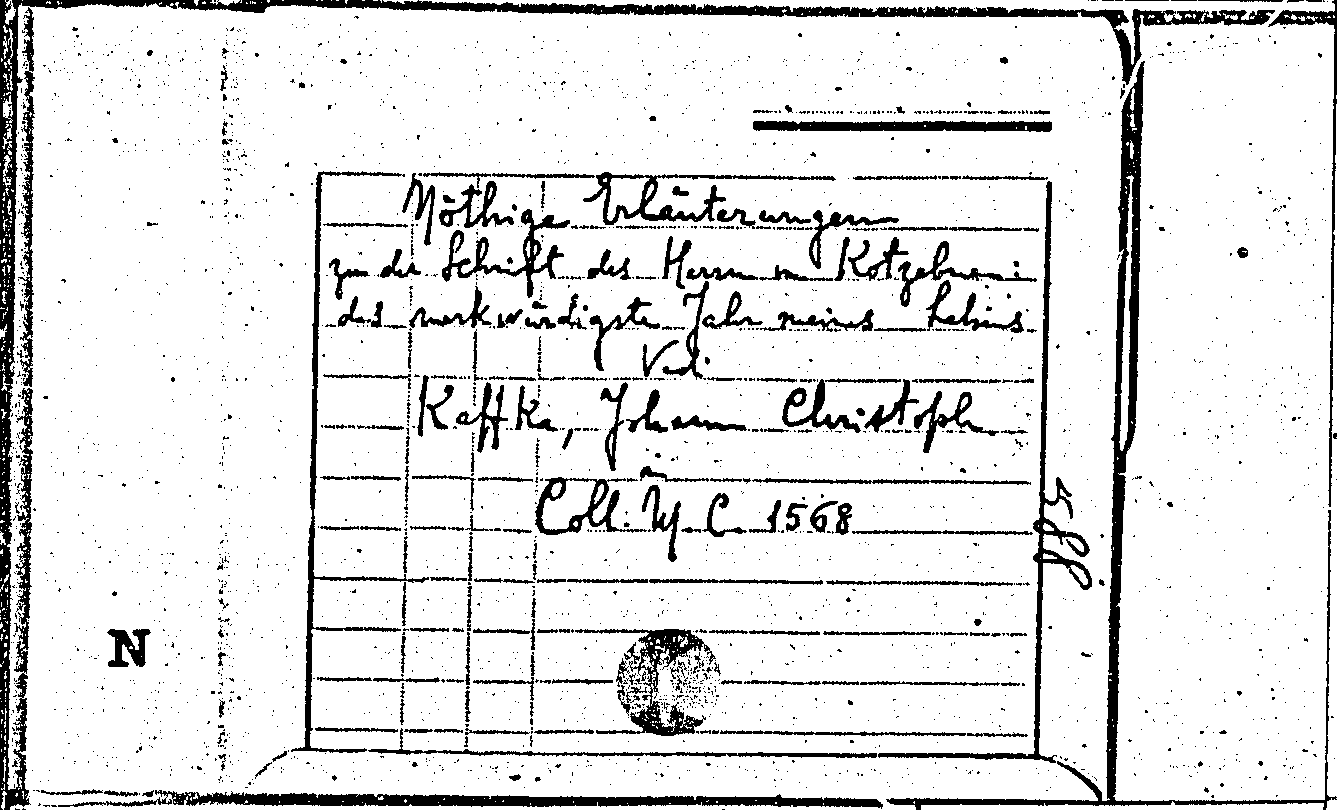 Nöthige Erläuterungen
zu der Schrift des Herrn von Kotzebue:
das merkwürdigste Jahr meines Lebens
Vid.
Kaffka, Johann Christoph
Coll. C. 1568
588
N